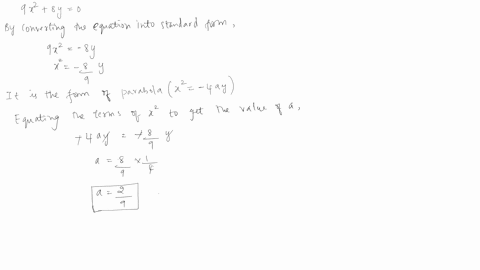 9x² + 8y = 0
By converting the equation into standard form,
9x² = -8y
x² = -8/9 y
It is the form of parabola (x² = -4ay)
Equating the terms of x² to get the value of a,
-4ay = -8/9 y
a = 8/9 × 1/4
a = 2/9